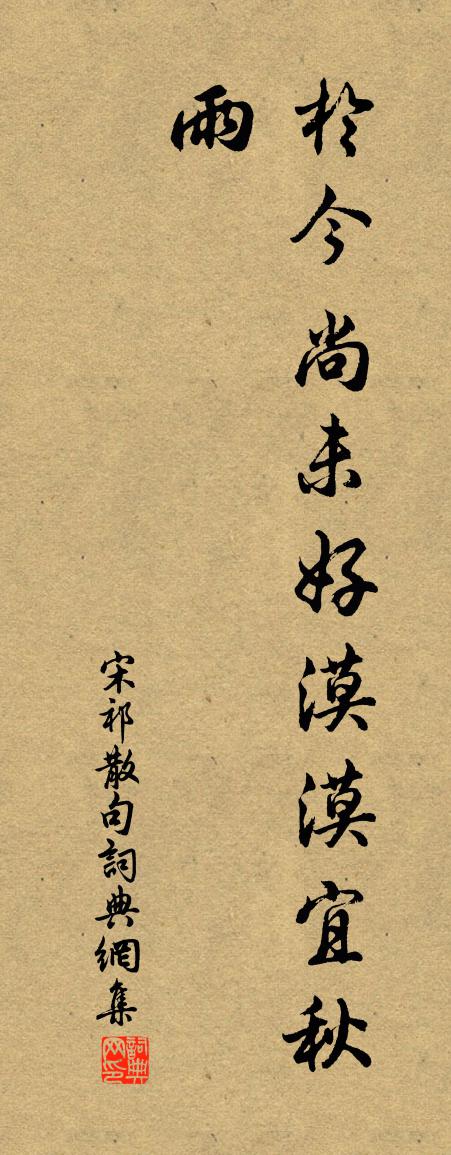 於今尚未好漠漠宜秋
雨
宋祁散句詞典網集
詞典网印